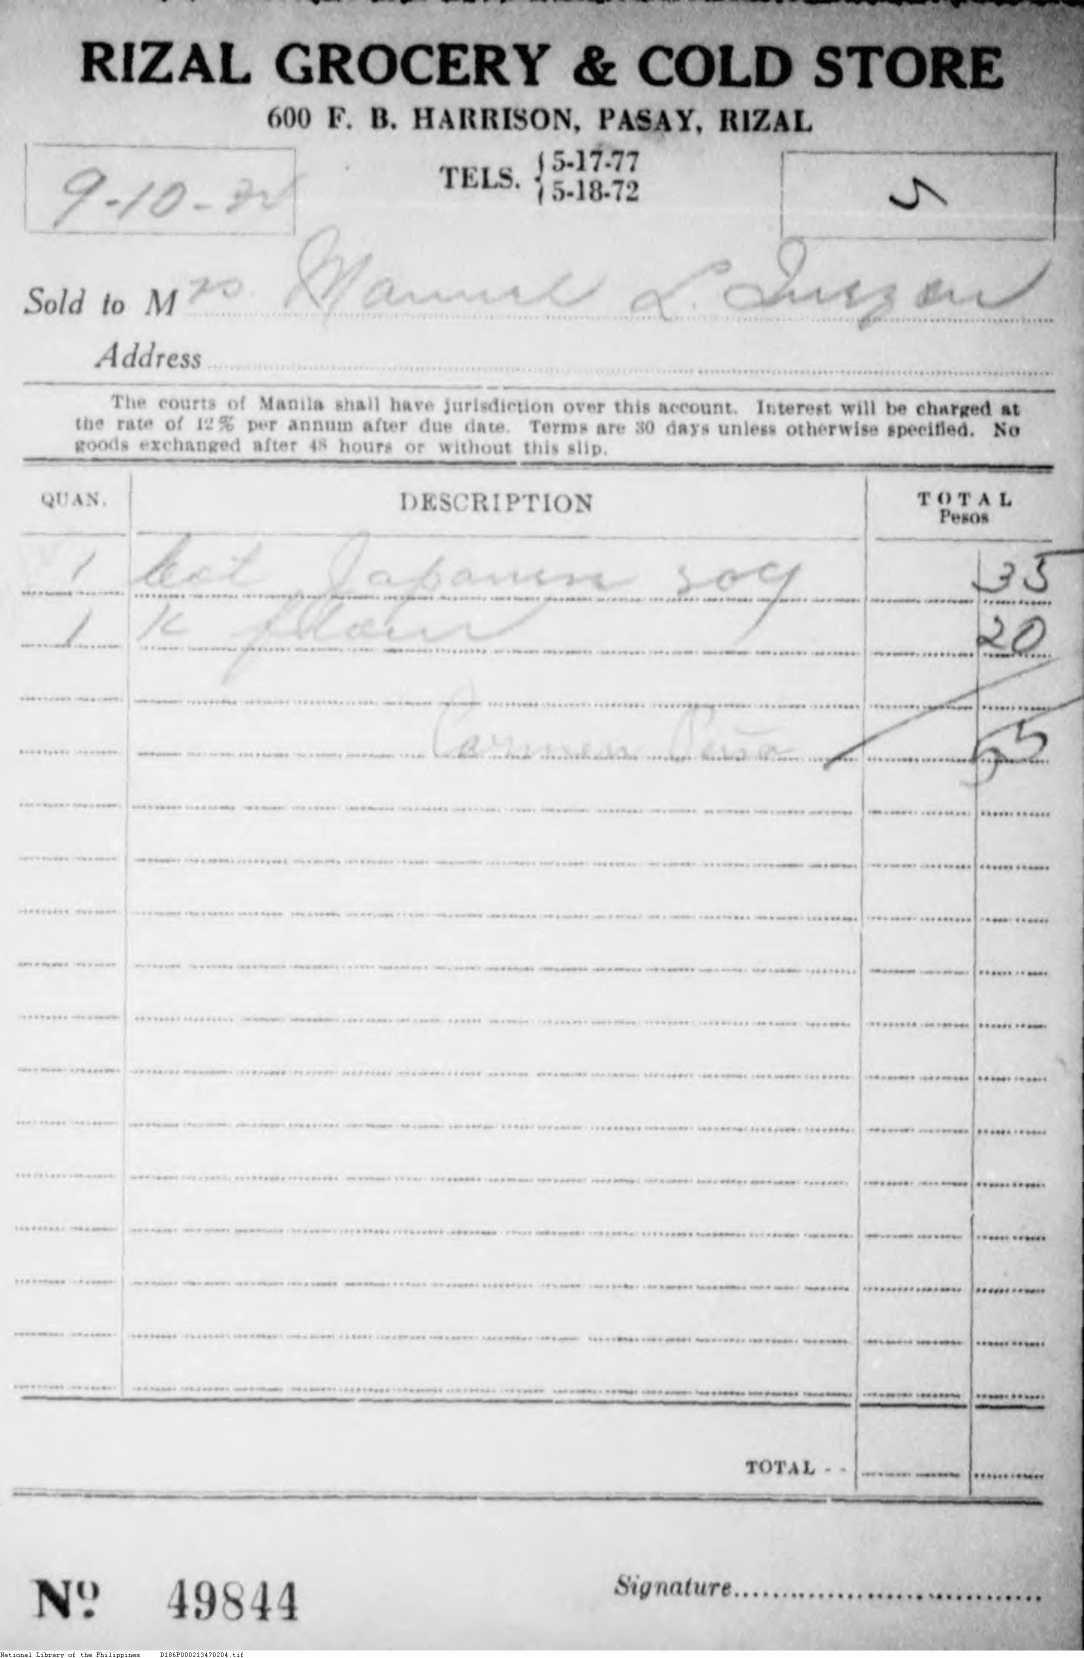 RIZAL GROCERY & COLD STORE
600 F. B. HARRISON, PASAY, RIZAL
TELS. 5-17-77
5-18-72
9-10-
5
Sold to Mrs. Manuel L. Quezon
Address
The courts of Manila shall have jurisdiction over this account. Interest will be charged at
the rate of 12% per annum after due date. Terms are 30 days unless otherwise specified. No
goods exchanged after 48 hours or without this slip.
QUAN. DESCRIPTION TOTAL
Pesos
1 bot Japanese soy 35
1 K flour 20
Carmen Peña 55
TOTAL - -
Nº 49844
Signature
National Library of the Philippines D186P000213470204.tif